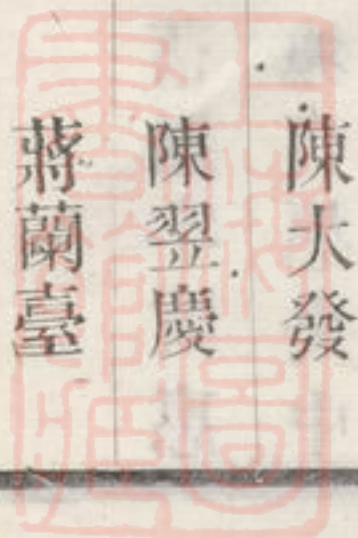 陳大發
陳翌慶
蔣蘭臺